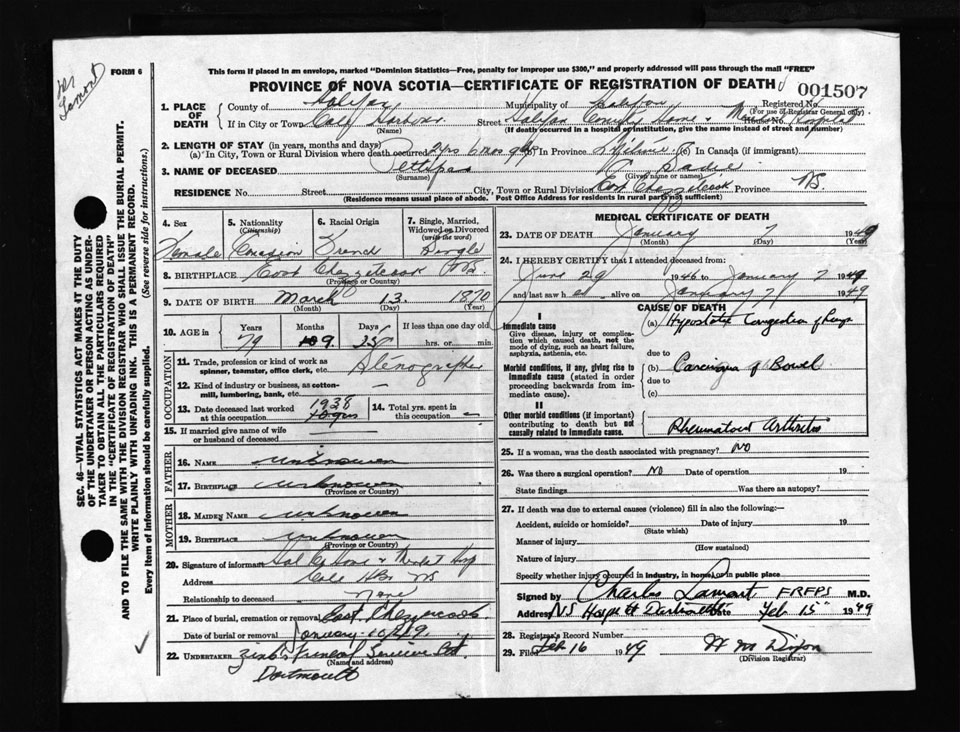 Dr
Lamont
FORM 6
This form if placed in an envelope, marked "Dominion Statistics—Free, penalty for improper use $300," and properly addressed will pass through the mail "FREE"
PROVINCE OF NOVA SCOTIA—CERTIFICATE OF REGISTRATION OF DEATH
001507
1. PLACE OF DEATH
County of Halifax
Municipality of Halifax
Registered No.
(For use of Registrar General only)
If in City or Town Cole Harbour
(Name)
Street Halifax County Home & Hospital
(If death occurred in a hospital or institution, give the name instead of street and number)
2. LENGTH OF STAY (in years, months and days)
(a) In City, Town or Rural Division where death occurred 2 yrs 6 mos 9
In Province
In Canada (if immigrant)
3. NAME OF DECEASED Pettipas
(Surname)
Sadie
(Given name or names)
RESIDENCE No.
Street
City, Town or Rural Division East Chezzetcook
Province NS
(Residence means usual place of abode. Post Office Address for residents in rural parts not sufficient)
4. Sex
Female
5. Nationality
(Citizenship)
6. Racial Origin
French
7. Single, Married, Widowed or Divorced
(write the word)
Single
8. BIRTHPLACE East Chezzetcook NS
(Province or Country)
9. DATE OF BIRTH March 13 1870
(Month) (Day) (Year)
10. AGE in
Years
79
Months
9
Days
25
If less than one day
hrs. or min.
OCCUPATION
11. Trade, profession or kind of work as spinner, teamster, office clerk, etc. Stenographer
12. Kind of industry or business, as cotton-mill, lumbering, bank, etc. —
13. Date deceased last worked at this occupation 1938
14. Total yrs. spent in this occupation —
15. If married give name of wife or husband of deceased —
FATHER
16. NAME unknowen
17. BIRTHPLACE unknowen
(Province or Country)
MOTHER
18. MAIDEN NAME unknowen
19. BIRTHPLACE unknowen
(Province or Country)
20. Signature of informant Hal Co Home & Hosp
Address Cole Hbr NS
Relationship to deceased None
21. Place of burial, cremation or removal East Chezzetcook
Date of burial or removal January 10
22. UNDERTAKER Zink's Funeral Service Ltd
(Name and address)
Dartmouth
MEDICAL CERTIFICATE OF DEATH
23. DATE OF DEATH January 7 1949
(Month) (Day) (Year)
24. I HEREBY CERTIFY that I attended deceased from:
June 29 1946 to January 7 1949
and last saw her alive on January 7 1949
CAUSE OF DEATH
I
Immediate cause
Give disease, injury or complication which caused death, not the mode of dying, such as heart failure, asphyxia, asthenia, etc.
(a) Hypostatic Congestion of Lungs
due to
Morbid conditions, if any, giving rise to immediate cause (stated in order proceeding backwards from immediate cause).
(b) Carcinoma of Bowel
due to
(c)
II
Other morbid conditions (if important) contributing to death but not causally related to immediate cause.
Rheumatoid Arthritis
25. If a woman, was the death associated with pregnancy? NO
26. Was there a surgical operation? NO Date of operation 19
State findings Was there an autopsy?
27. If death was due to external causes (violence) fill in also the following:—
Accident, suicide or homicide? Date of injury 19
(State which)
Manner of injury
(How sustained)
Nature of injury
Specify whether injury occurred in industry, in home, or in public place
Signed by Charles Lamont FRFPS M.D.
Address NS Hospital Dartmouth Date Feb 15 1949
28. Registrar's Record Number
29. Filed Feb 16 1949 W M Dixon
(Division Registrar)
SEC. 46—VITAL STATISTICS ACT MAKES IT THE DUTY
OF THE UNDERTAKER OR PERSON ACTING AS UNDER-
TAKER TO OBTAIN ALL THE PARTICULARS REQUIRED
IN THE "CERTIFICATE OF REGISTRATION OF DEATH"
AND TO FILE THE SAME WITH THE DIVISION REGISTRAR WHO SHALL ISSUE THE BURIAL PERMIT.
WRITE PLAINLY WITH UNFADING INK. THIS IS A PERMANENT RECORD.
Every item of information should be carefully supplied. (See reverse side for instructions.)